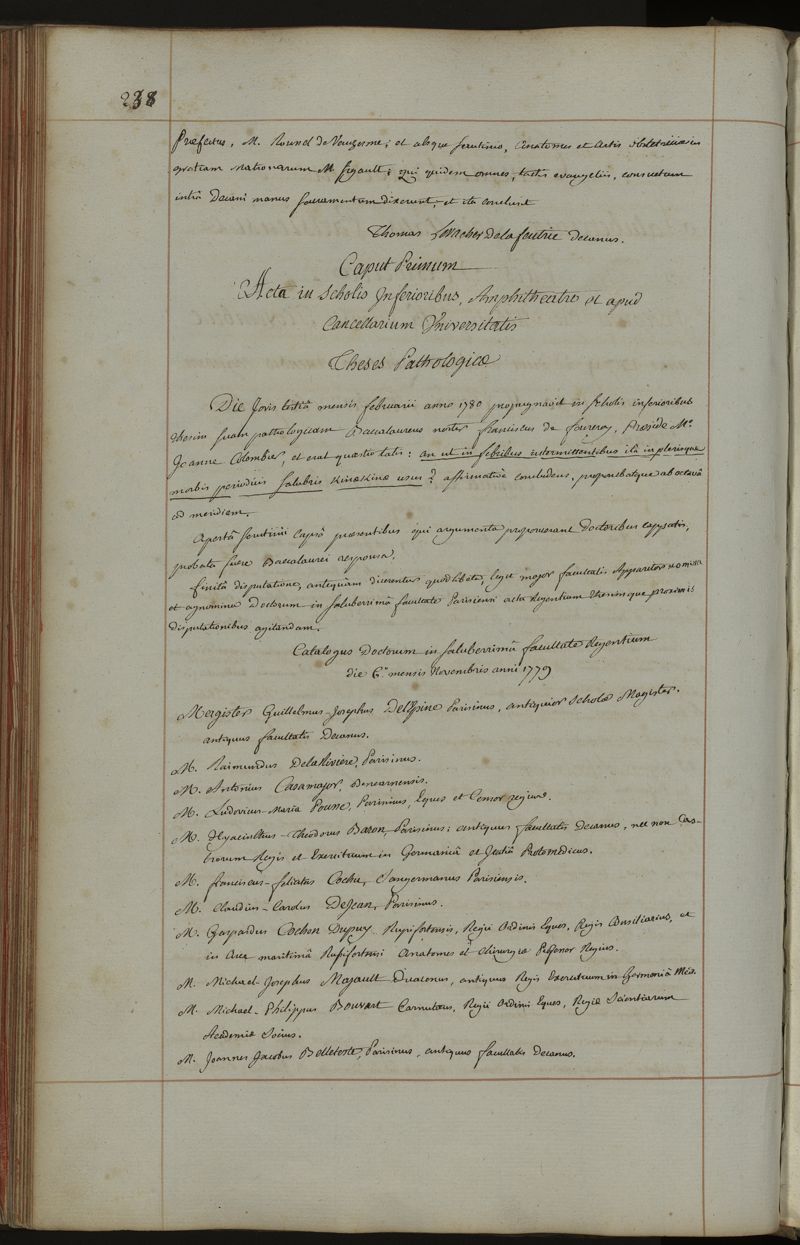 238
Præfectus, M. Roussel de Vauzesme; et absque scrutinio, Anatomes et Artis obstetriciæ in
gratiam nationarum M. Sigault; qui quidem omnes, tactis evangeliis, consuetum
intrà Decani manus sacramentum dixerunt, et ita conclusit
Thomas Levacher Delafeutrie Decanus.
Caput Primum
Acta in Scholis Inferioribus, Amphitheatro et apud
Cancellarium Universitatis
Theses Pathologicæ
Die Jovis tertiâ mensis februarii anno 1780 propugnavit in scholis inferioribus
thesim suam pathologicam Baccalaureus noster franciscus de fourcroy, Præside Mro.
Joanne Colombier, et erat quæstio talis: an ut in febribus intermittentibus ità in plerisque
morbis periodicis salubris Kinækinæ usus? affirmativè concludens, propugnabatque ab octavâ
ad meridiem.
Apertâ scrutinii capsâ præsentibus qui argumenta proposuerant Doctoribus capsatis,
probata fuere Baccalaurei responsa.
finitâ disputatione, antequàm dicerentur quodlibeta, legit major facultatis Apparitor nomina
et agnomina Doctorum in saluberrimâ facultate Parisiensi actu Regentium thesisque proximis
disputationibus agitandam.
Catalogus Doctorum in saluberrimâ facultate Regentium
die 6.a mensis Novembris anni 1779
Magister Guillelmus-Josephus Del'Epine Parisinus, antiquior scholæ Magister.
antiquus facultatis Decanus.
M. Raimundus DelaRiviere, Parisinus.
M. Antonius Casamajor, Benearnensis.
M. Ludovicus-Maria Pousse, Parisinus, Eques et Censor regius.
M. Hyacinthus-Theodorus Baron, Parisinus; antiquus facultatis Decanus, nec non Cas-
trorum Regis et Exercituum in Germaniâ et Italiâ Protomedicus.
M. franciscus-felicitas Cochu, Sangermanus Parisiensis.
M. Claudius-Carolus DeJean, Parisinus.
M. Gaspardus Cochon Dupuy Rupifortensis, Regii Ordinis Eques, Regis Consiliarius, et
in Arce maritimâ Rupifortensi Anatomes et Chirurgiæ Professor Regius.
M. Michael-Josephus Majault Duacenus, antiquus Regis Exercituum in Germaniâ Med.
M. Michael-Philippus Bouvart Carnutæus, Regii Ordinis Eques, Regiæ Scientiarum
Academiæ Socius.
M. Joannes Jacobus Belleteste, Parisinus, antiquus facultatis Decanus.